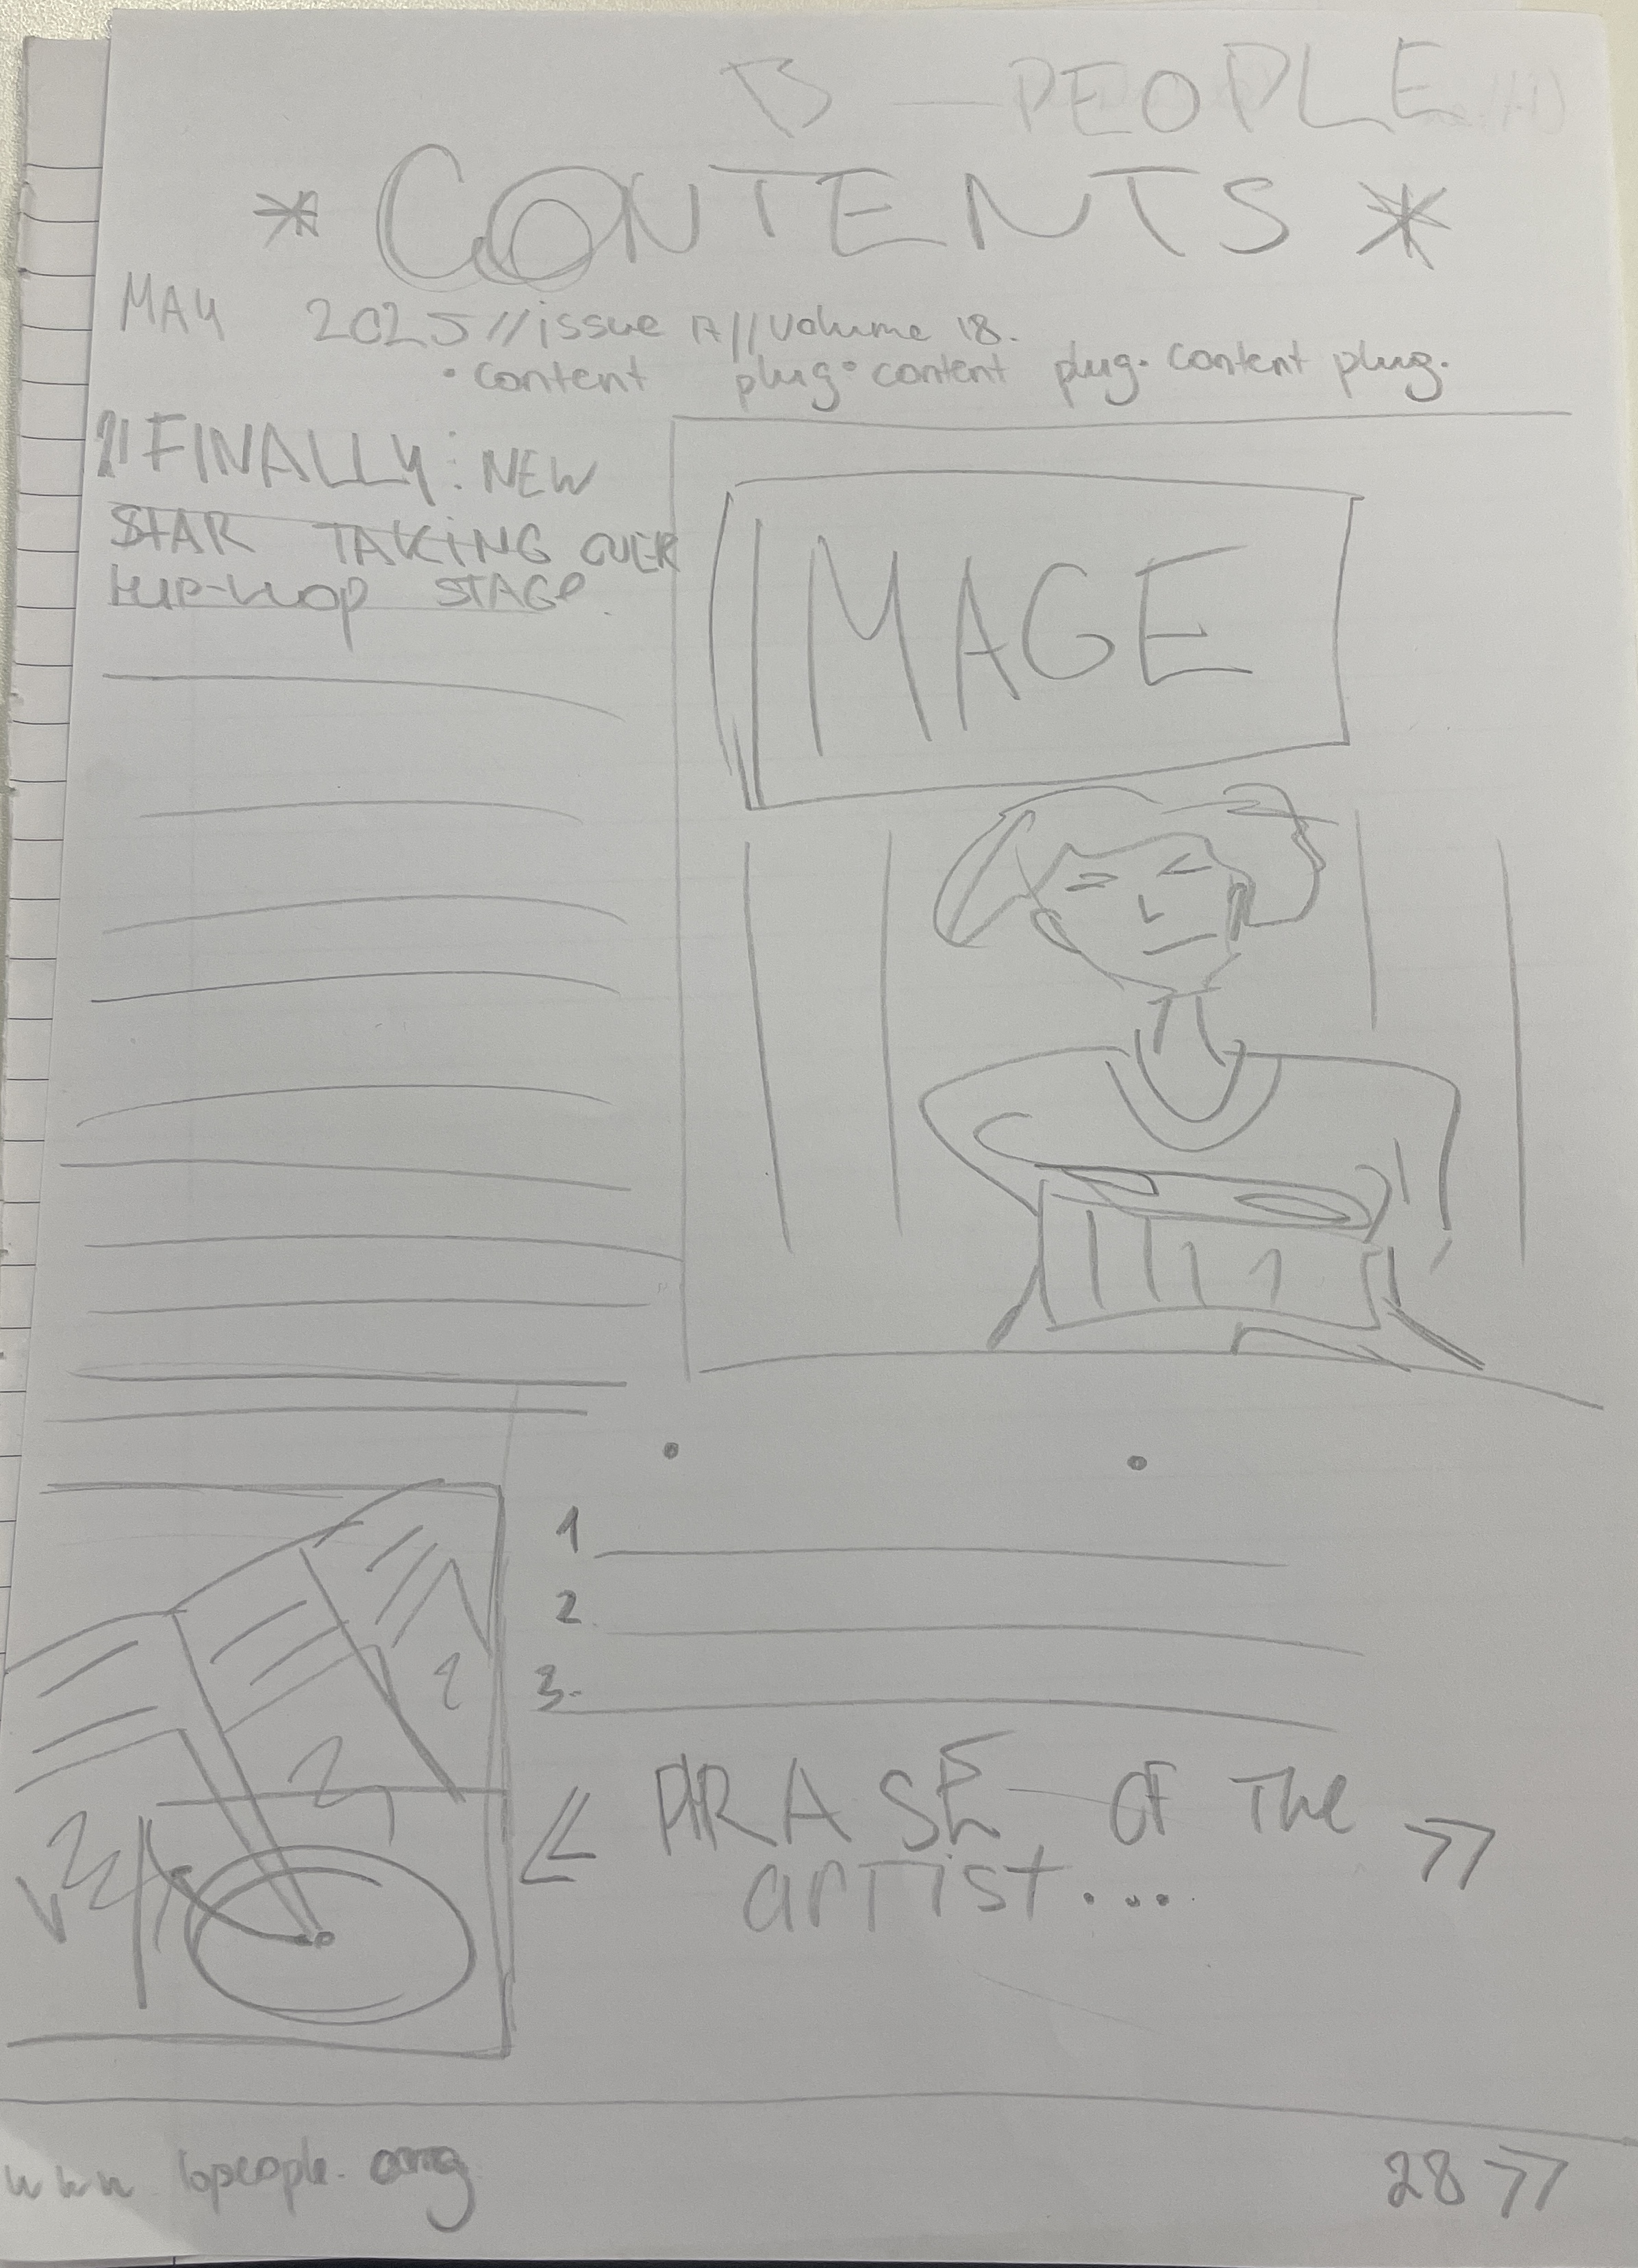 B — PEOPLE
* CONTENTS *
MAY 2025 // issue 17 // volume 18.
• content plug • content plug • content plug.
FINALLY: NEW
STAR TAKING OVER
HIP-HOP STAGE.
IMAGE
1
2.
3.
<< PHRASE OF The >>
artist...
www. bpeople. org
28 >>